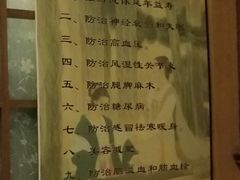 延年益寿
二、防治神经衰弱和失眠
三、防治高血压
四、防治风湿性关节炎
五、防治腿脚麻木
六、防治糖尿病
七、防治感冒祛寒暖身
八、美容
九、防治脑溢血和脑血栓